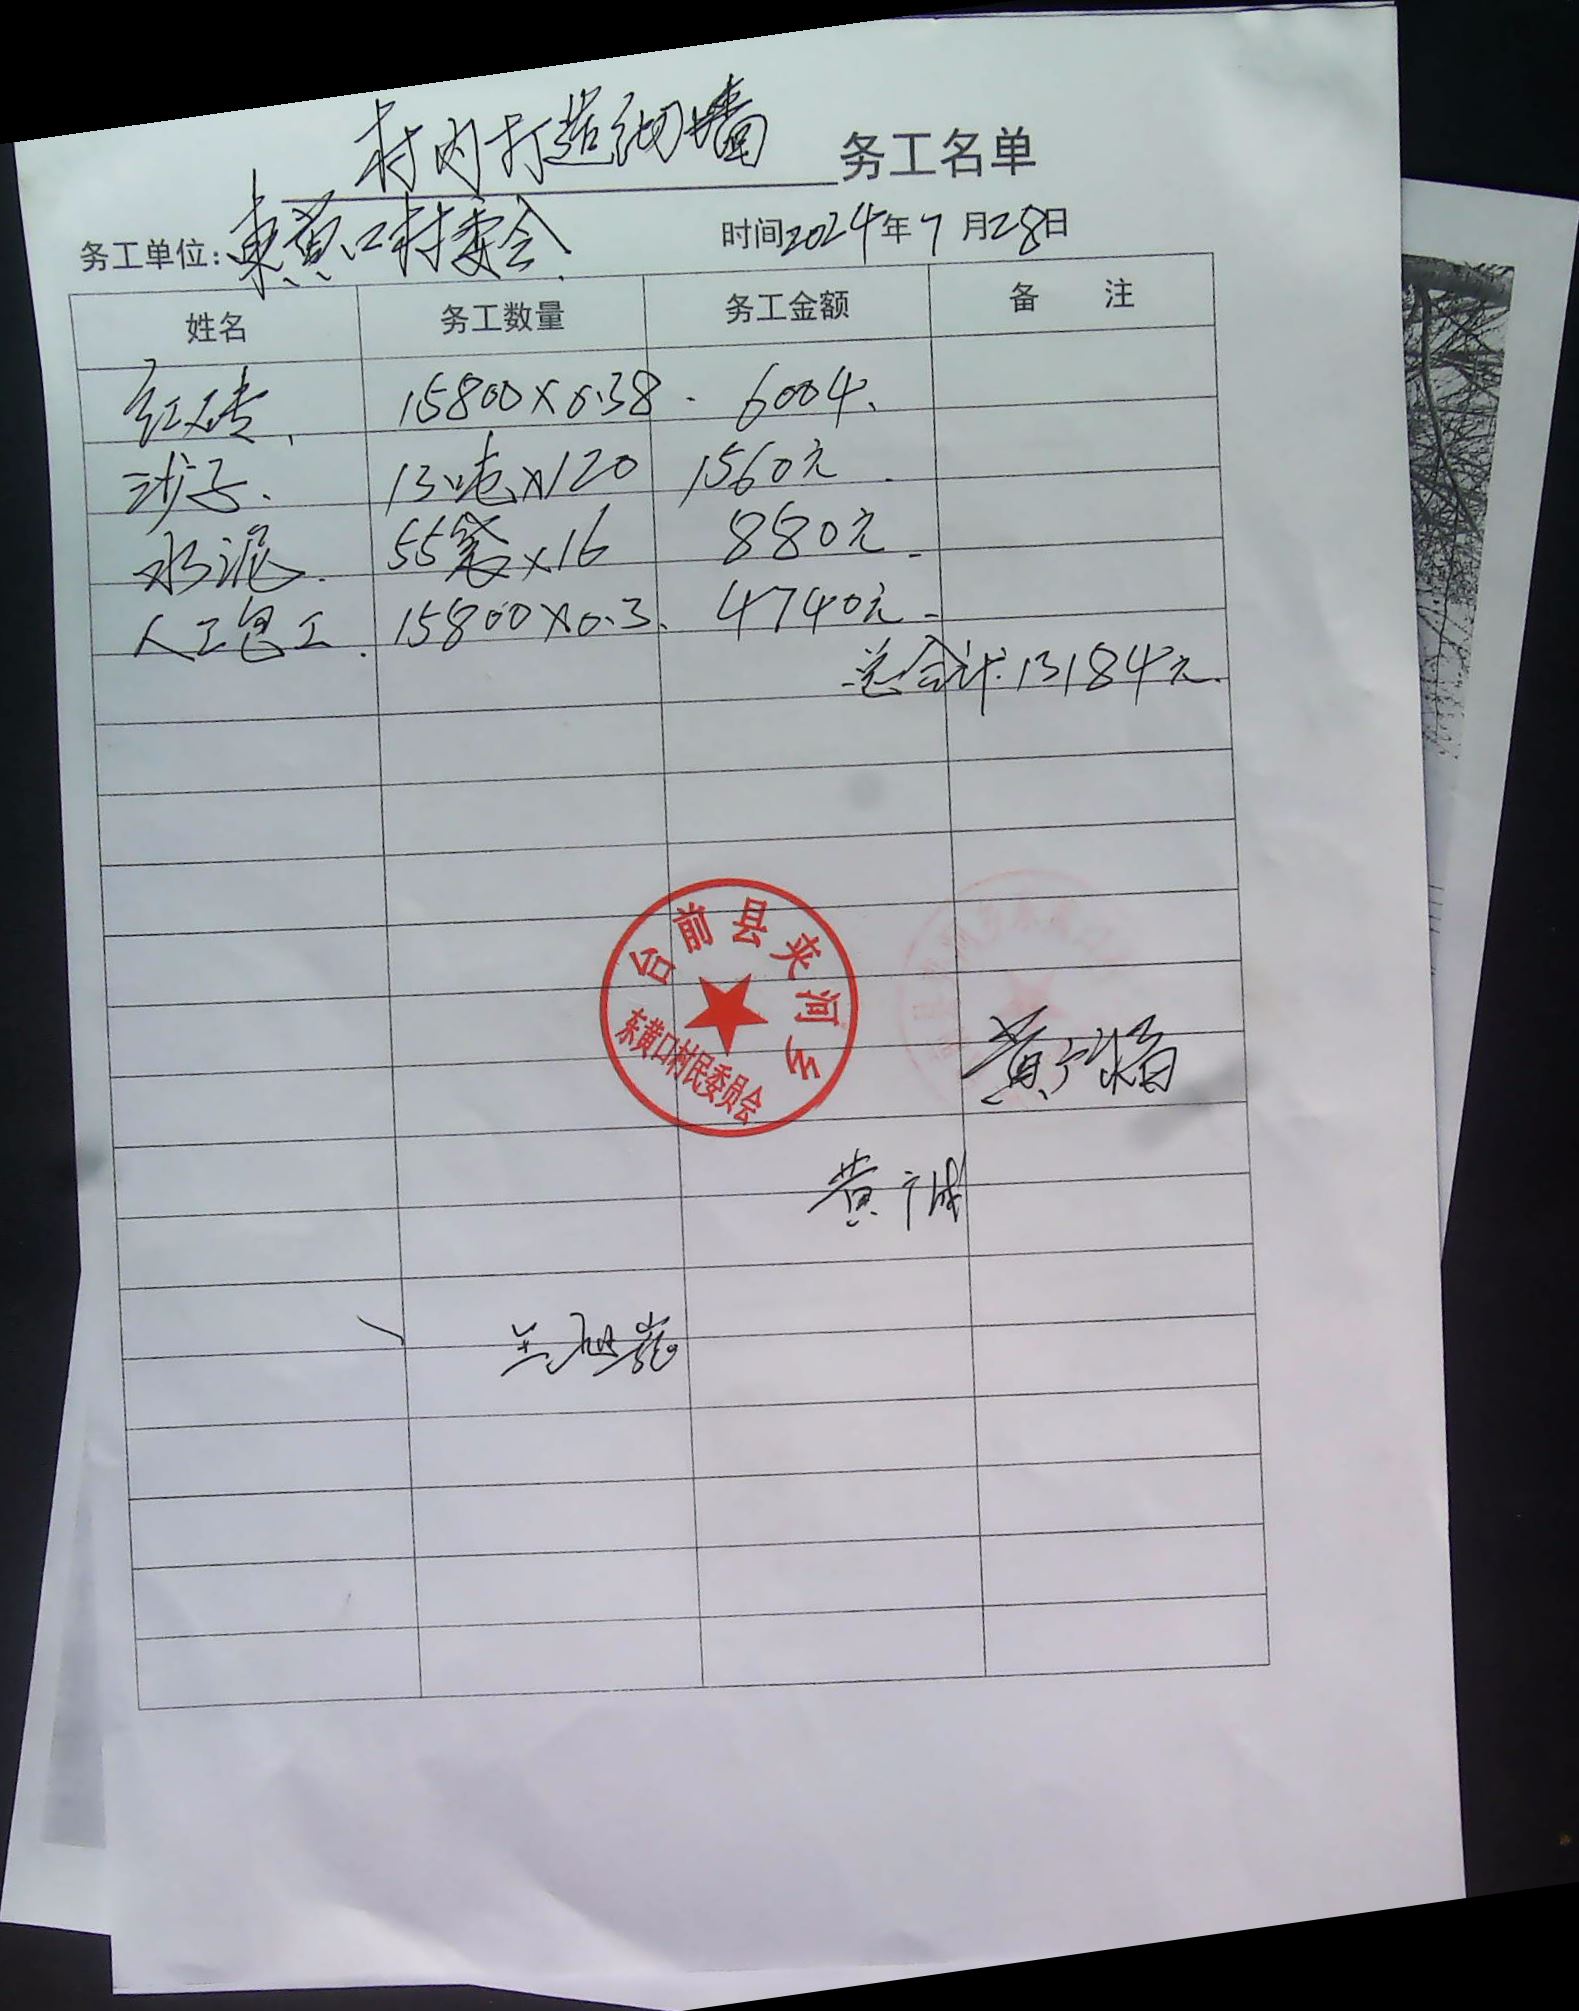 村内打造砌墙务工名单
务工单位:東黄口村委会 时间2024年7月28日
姓名 务工数量 务工金额 备 注
红砖 15800×0.38 6004
沙子 13吨×120 1560元
水泥 55袋×16 880元
人工包工 15800×0.3 4740元
总合计 13184元
台前县夹河乡
东黄口村民委员会
黄
黄广成
兰旭岩